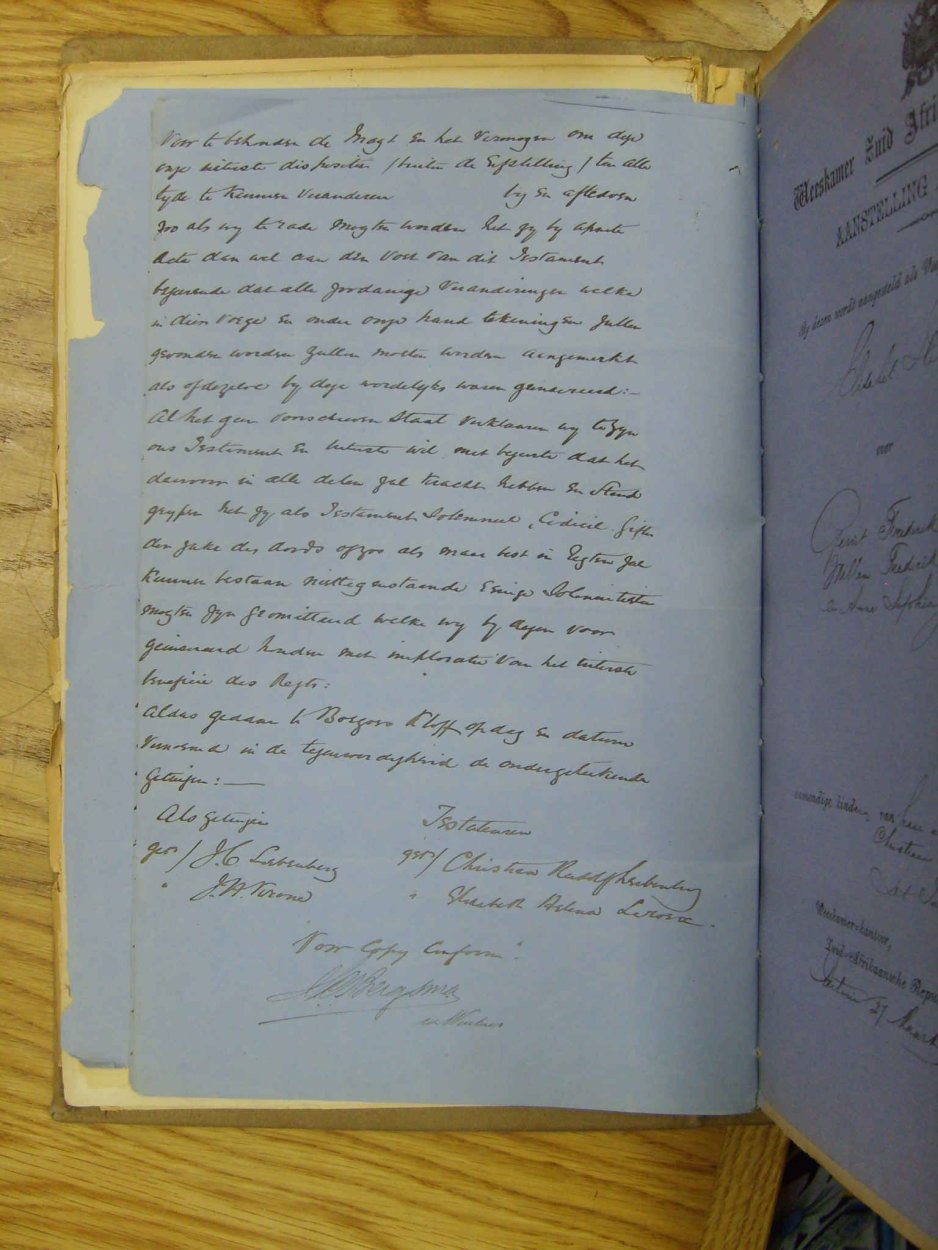 Voor te behouden de Magt en het Vermogen om deze
onze uiterste dispositie (buiten de Erfstelling) ten alle
tyde te kunnen Veranderen by en afledoen
Zoo als wy te rade mogten worden het zy by aparte
Acte dan wel aan den Voet van dit Testament
begerende dat alle zoodanige Veranderingen welke
in dier Voege en onder onze hand tekeningen zullen
gevonden worden zullen moeten worden aangemerkt
als of dezelve by deze woordelyks waren geinsereerd:-
Al het geen Voorschreven Staat Verklaaren wy te Zyn
ons Testament en Uiterste Wil met begeerte dat het
daarvoor in alle delen zal kracht hebben en Stand
grypen het zy als Testament Solemneel, Codicil, Gifte
ter zake des doods of zoo als maar best in Regten Zal
kunnen bestaan niettegenstaande Eenige Solemniteiten
mogten zyn geomitteerd welke wy by dezen voor
geinsereerd houden met imploratie van het uiterste
beneficie des Regts:
Aldus gedaan te Kloff op dag en datum
in de tegenwoordigheid de ondergetekende
Getuigen:—
Als getuigen Testateuren
get/ J. C Liebenberg get/ Christian Rudolf Liebenberg
" J. H. " Elizabeth Helena
Voor Copy Conform.
Bergsma
Weeskamer Zuid Afri
AANSTELLING
By dezen wordt aangesteld als Vo
voor
Gerrit Frederik
Willem Frederik
en Anna Sophia
minderjarige kinderen van
Christian
Weeskamer-kantoor,
Zuid-Afrikaansche Repu
27 Maart